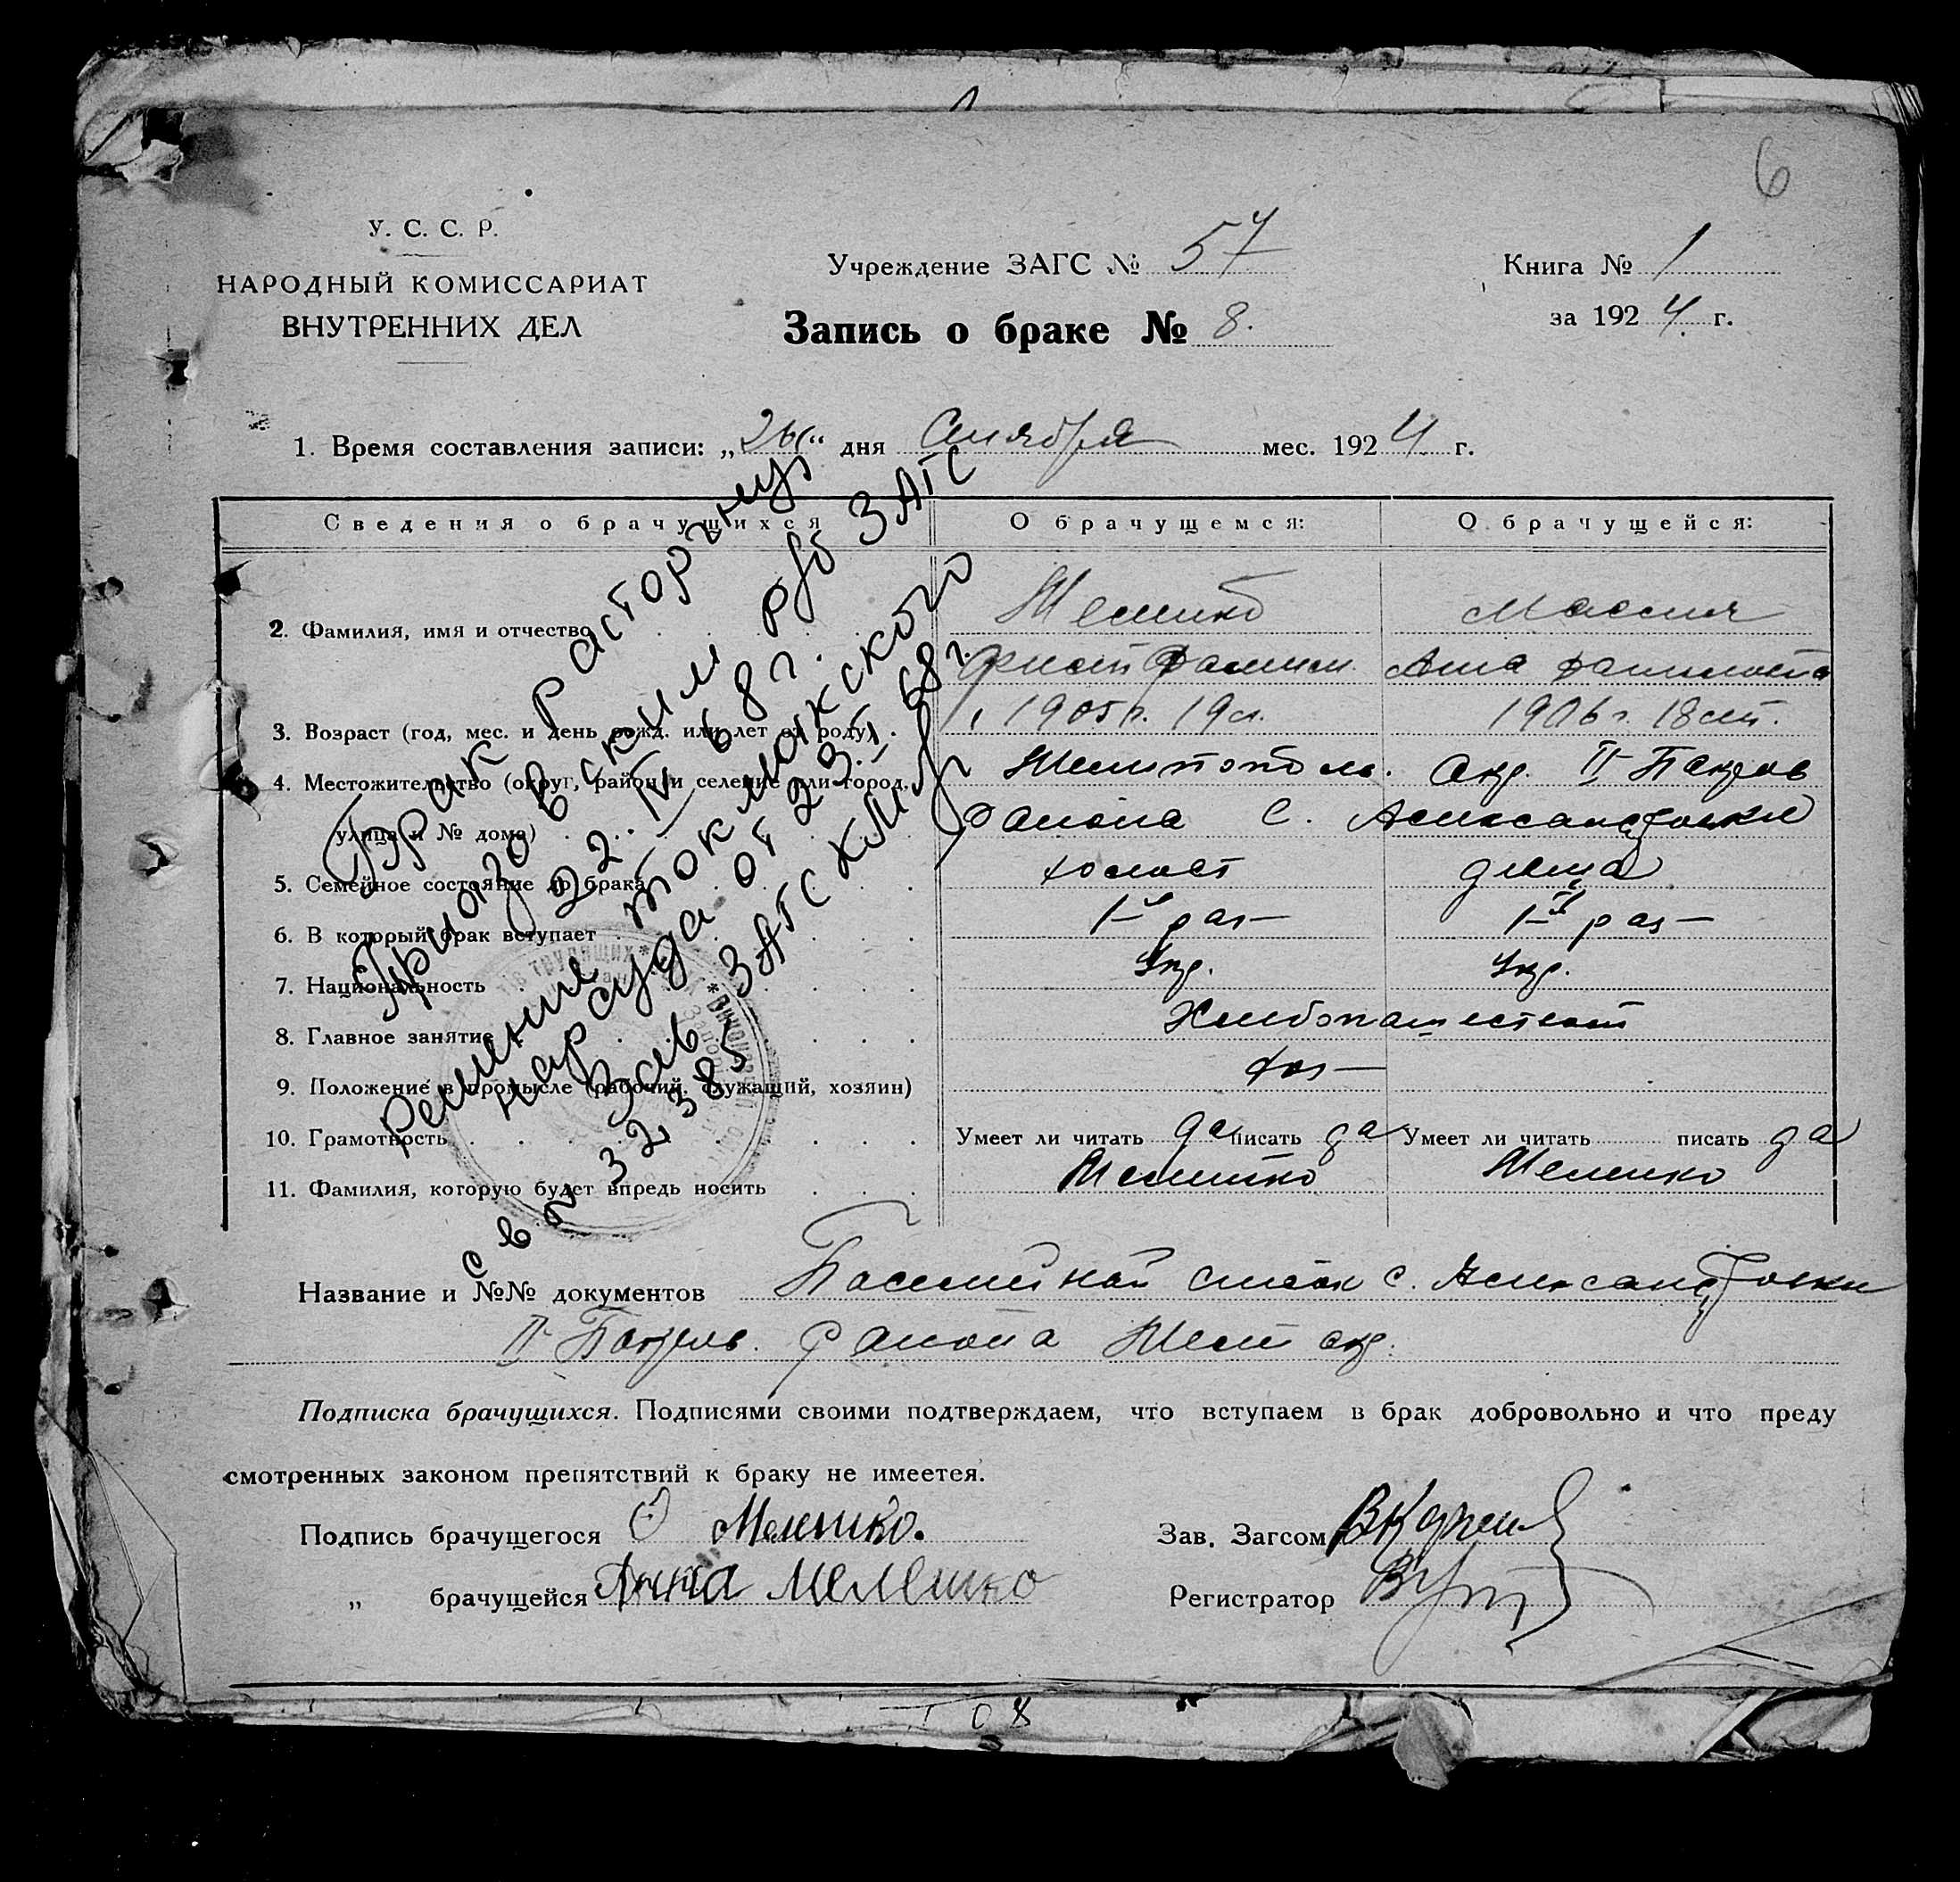 6
У. С. С. Р.
НАРОДНЫЙ КОМИССАРИАТ
ВНУТРЕННИХ ДЕЛ
Учреждение ЗАГС № 57
Запись о браке № 8.
Книга № 1
за 1924 г.
1. Время составления записи: „ “ дня мес. 1924 г.
Сведения о брачущихся О брачущемся: О брачущейся:
2. Фамилия, имя и отчество
3. Возраст (год, мес. и день рожд. или лет от роду) 1905 г. 19 л. 1906 г. 18 лет.
4. Местожительство (округ, район и селение или город, Мелитополь. окр. II Покров
улица и № дома) района с. Александровки
5. Семейное состояние до брака холост девица
6. В который брак вступает 1-й раз 1-й раз
7. Национальность Укр. Укр.
8. Главное занятие Хлебопашество
9. Положение в промысле (рабочий, служащий, хозяин) хоз
10. Грамотность Умеет ли читать да писать да Умеет ли читать писать да
11. Фамилия, которую будет впредь носить Мелешко Мелешко
Брак расторгнут
Приазовским р/б ЗАГС
22. IV 68 г.
Решение Токмакского
нарсуда от 23. I 68 г.
Зав. ЗАГС
св № 32385
Название и №№ документов Посемейный список с. Александровки
II Покров. района Мелит окр.
Подписка брачущихся. Подписями своими подтверждаем, что вступаем в брак добровольно и что преду
смотренных законом препятствий к браку не имеется.
Подпись брачущегося Мелешко.
Зав. Загсом
„ брачущейся Анна Мелешко
Регистратор
08